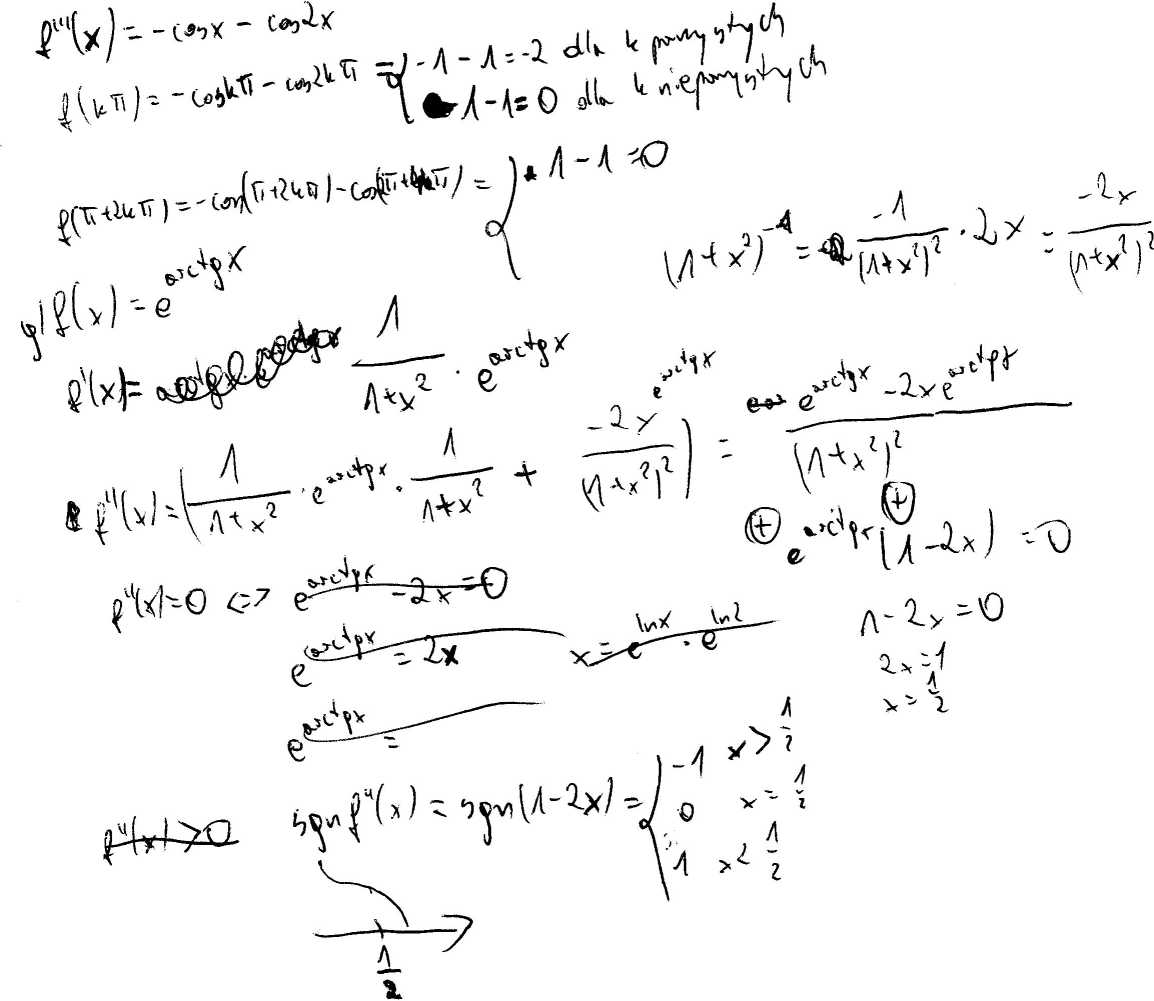 f'''(x) = -cosx - cos2x
f(kπ) = -coskπ - cos2kπ = { -1 - 1 = -2 dla k parzystych
1 - 1 = 0 dla k nieparzystych
f(π+2kπ) = -cos(π+2kπ) - cos(2π+4kπ) = { 1 - 1 = 0
(1+x²)⁻¹ = -1/(1+x²)² · 2x = -2x/(1+x²)²
g) f(x) = e^arctgx
f'(x) = 1/(1+x²) · e^arctgx
f''(x) = (1/(1+x²) · e^arctgx · 1/(1+x²) + -2x e^arctgx/(1+x²)²) = (e^arctgx - 2x e^arctgx)/(1+x²)²
⊕ ⊕
e^arctgx (1-2x) = 0
f''(x) = 0 <=> e^arctgx - 2x = 0
1 - 2x = 0
e^arctgx = 2x
x = e^lnx · e^ln2
2x = 1
x = 1/2
e^arctgx =
f''(x) > 0
sgn f''(x) = sgn(1-2x) = { -1 x > 1/2
0 x = 1/2
1 x < 1/2
1/2